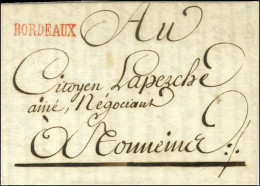 BORDEAUX
Au
Citoyen Laperche
ainé, Négociant
À Tonneins